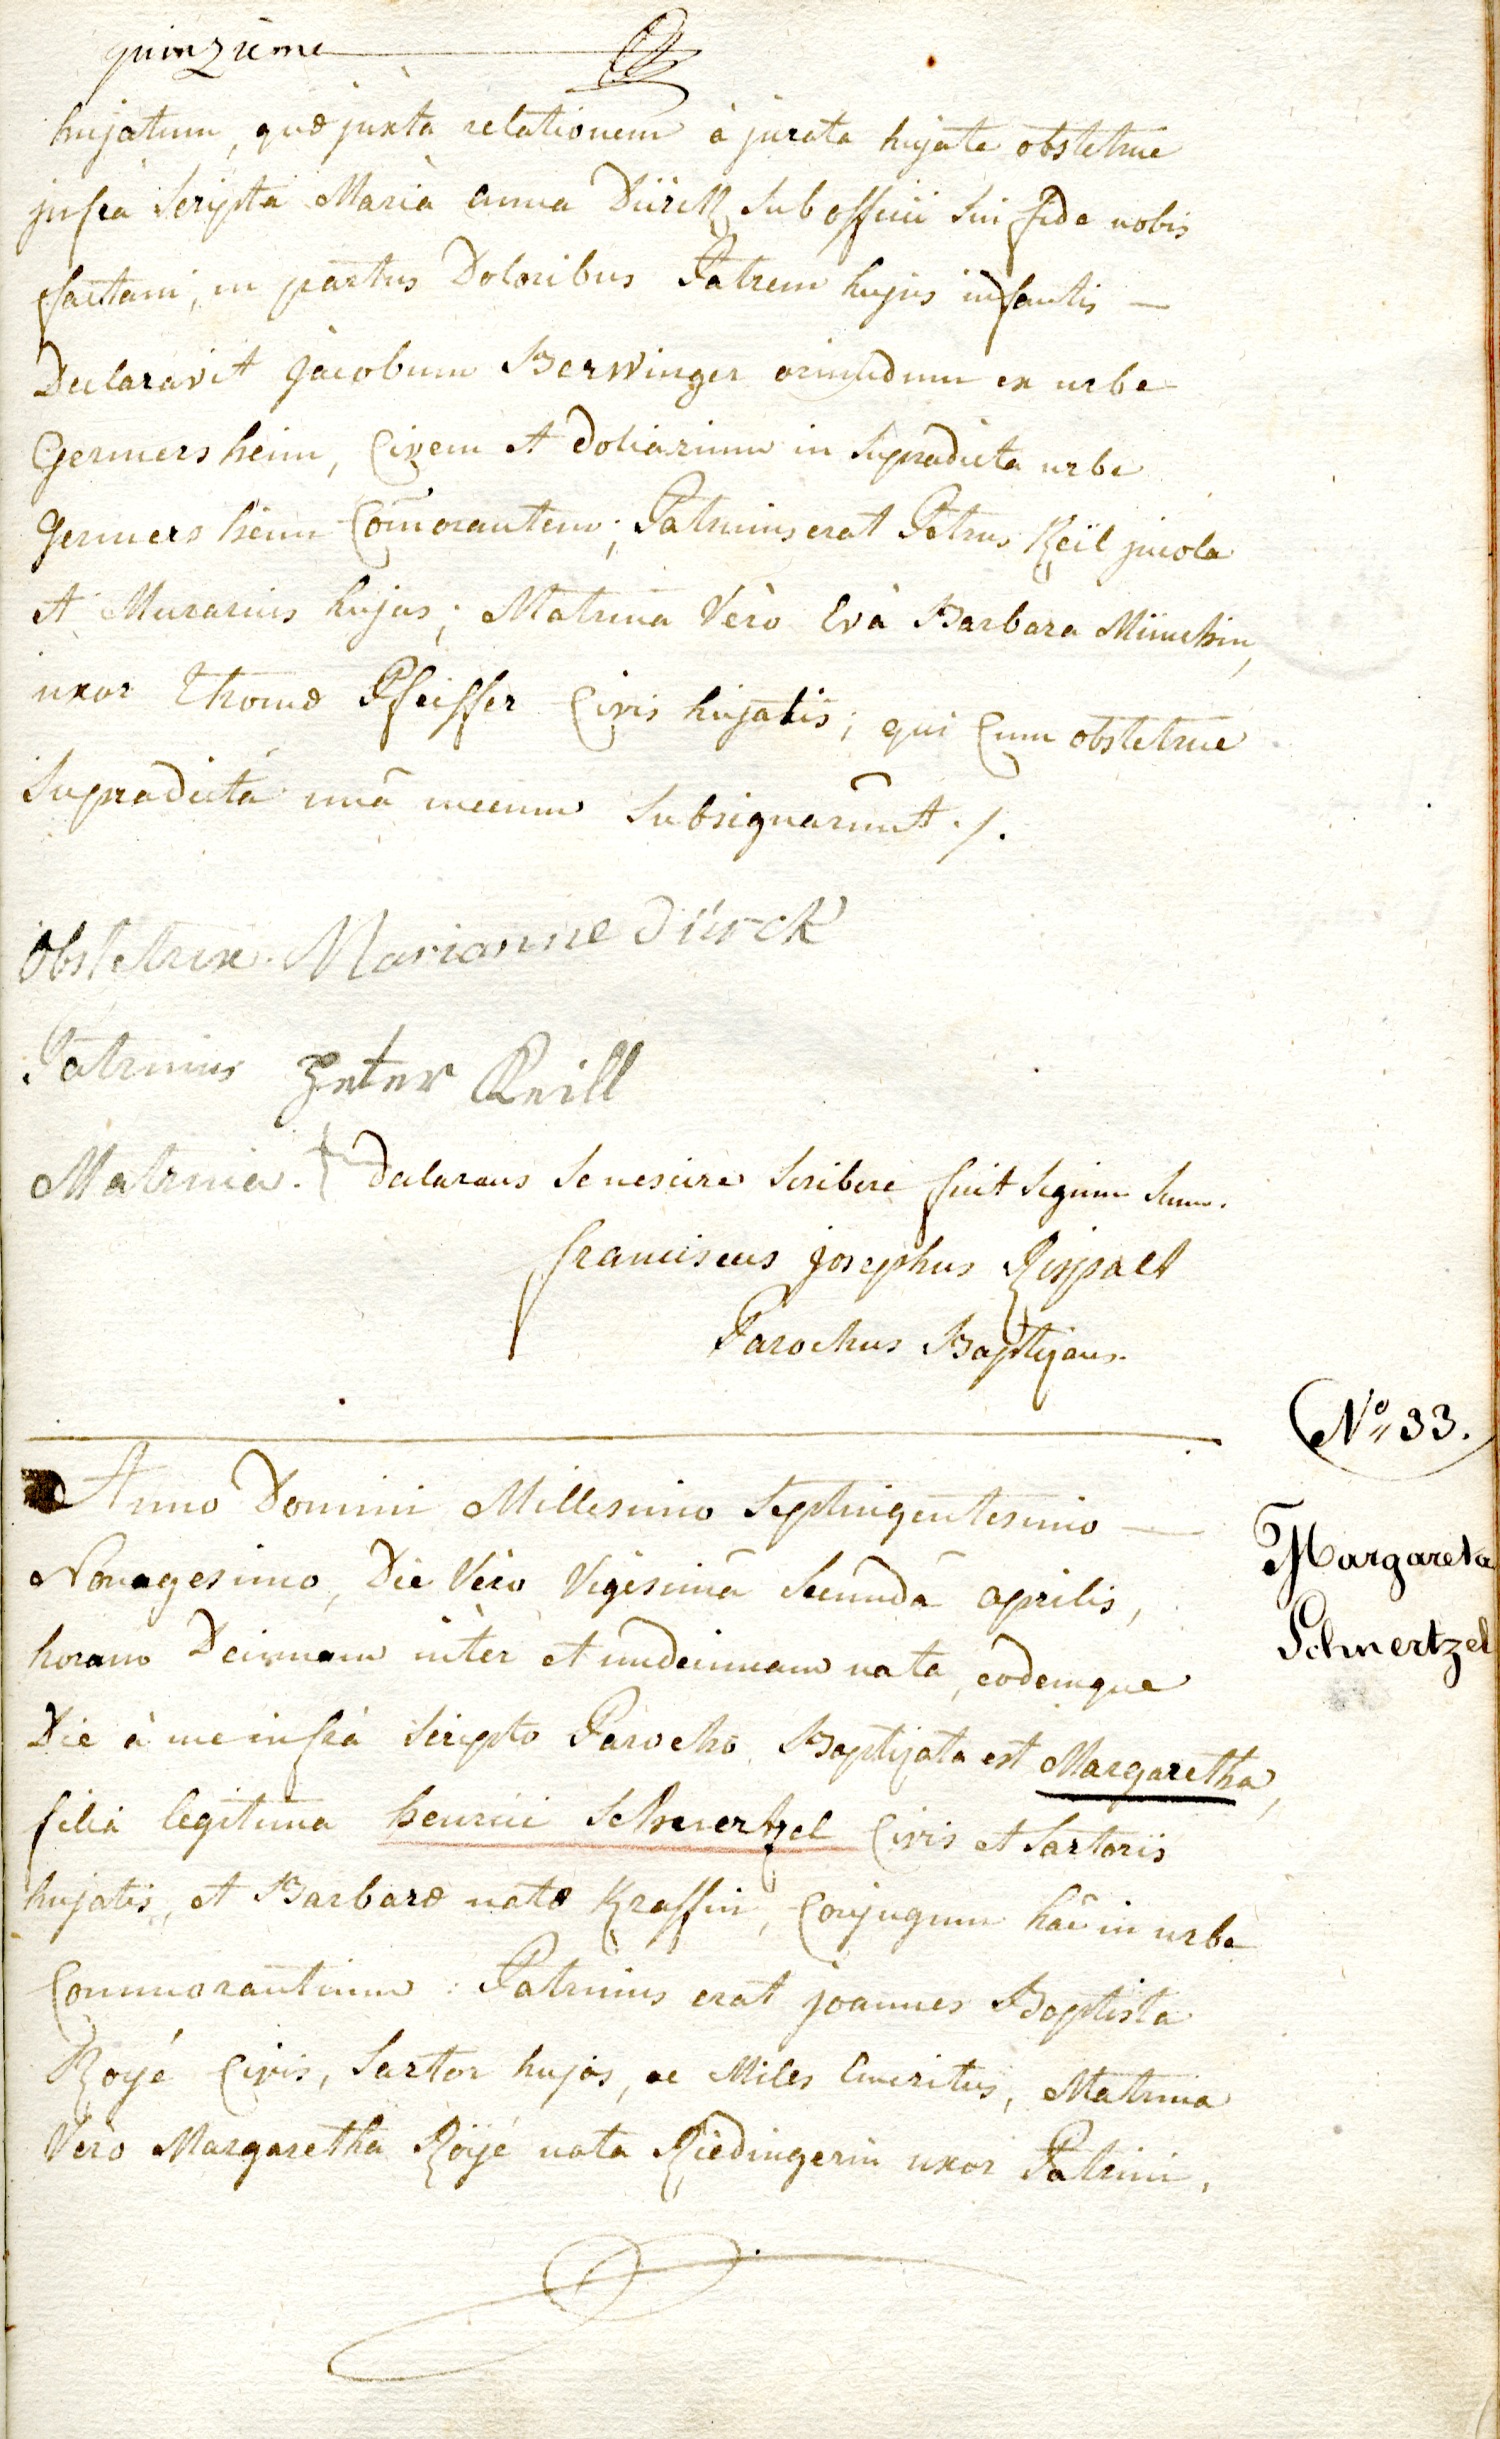 quinzieme
hujatum, quæ juxta relationem à jurata hujate obstetrice
jnfra scripta Mariâ anna Dürck sub officii sui fide nobis
factam, in partus Doloribus Patrem hujus infantis —
Declaravit jacobum Berwinger oriundum ex urbe
Germersheim, Civem et doliarium in supradicta urbe
Germersheim Com̄orantem; Patrinus erat Petrus Keil jncola
et Murarius hujas; Matrina Verò Eva Barbara Münchin,
uxor Thomæ Pfeiffer Civis hujatis; qui Cum obstetrice
supradictâ unâ mecum subsignarunt ./.
Obstetrix. Marianne Dürck
Patrinus Peter Keill
Matrina. † declarans se nescire scribere fecit signum suum.
franciscus josephus Rispalt
Parochus Baptizans.
No 33.
Anno Domini Millesimo Septingentesimo —
Nonagesimo, Die Vero Vigesimâ Secundâ aprilis,
horam Decimam inter et undecimam nata, eodemque
Die à me infrà scripto Parocho Baptizata est Margaretha,
filia legitima henrici Schwertzel Civis et Sartoris
hujatis, et Barbaræ natæ Kraffin, Conjugum hâc in urbe
Commorantium: Patrinus erat joannes Baptista
Royé Civis, Sartor hujas, ac Miles Emeritus, Matrina
Vero Margaretha Röyé nata Riedingerin uxor Patrini.
Margareta
Schwertzel